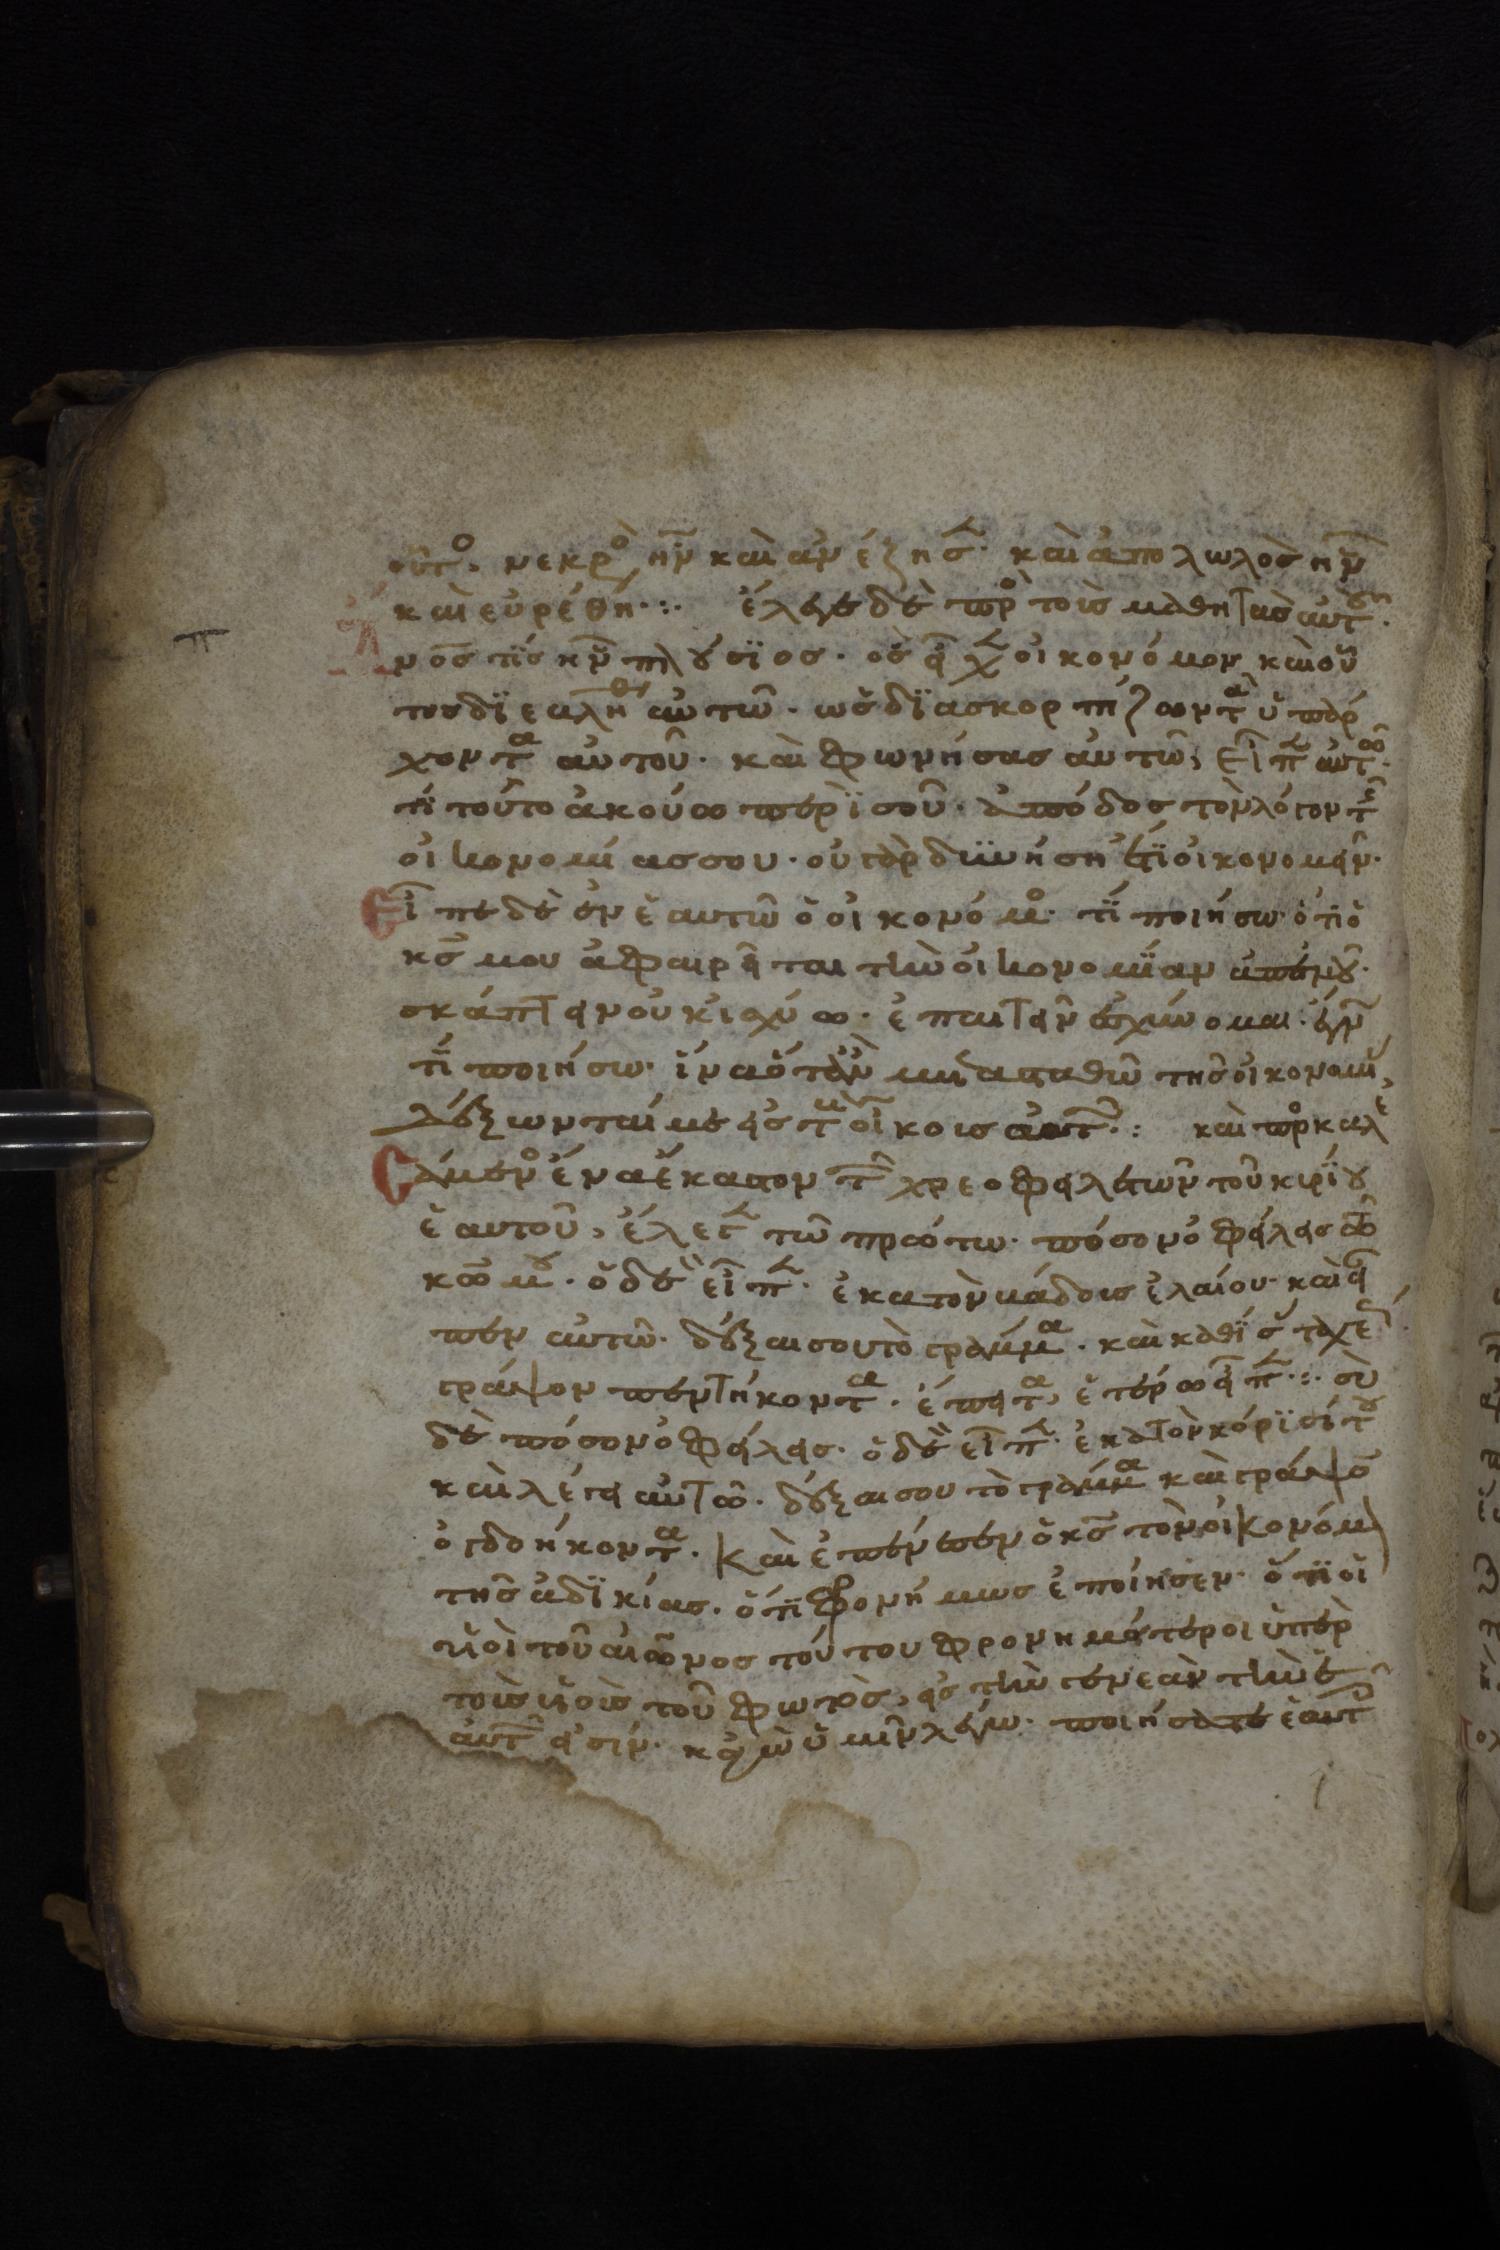 οὗτο νεκρὸ ἦν καὶ ἀνέζησ. καὶ ἀπολωλὸς ἦν
καὶ εὑρέθη·:· ἔλεγε δὲ πρὸ τοῖς μαθητὰς αὐτοῦ.
Α̅νο̅ς τϊς ἦν πλούσϊος. ὃς εἶχ οἰκονόμον καὶ οὗ
τος δϊεβλήθη αὐτῶ. ὡς δϊασκορπήζωντ τὰ ὑπάρ
χοντα αὐτοῦ. καὶ φωνήσας αὐτῶ, εἶπ αὐτῶ.
τϊ τοῦτο ἀκούω περϊ σοῦ. ἀπόδος τὸν λόγον τῆ
οἰκονομίας σου. οὐ γὰρ δυνήση ἔτϊ οἰκονομεῖν.
Εἶπε δὲ ἐν ἑαυτῶ ὁ οἰκονόμο. τϊ ποιήσω. ὅτϊ ὁ
κ̅ς μου ἀφαιρεῖται τὴν οἰκονομΐαν ἀπεμοῦ.
σκάπτειν οὐκ ἰσχύω. ἐπαιτεῖν αἰσχύνομαι. ἔγν
τΐ ποιήσω. ἵνα ὅταν μετασταθῶ τῆς οἰκονομί
δέξωνται με εἰς τοὺ οἴκοις αὐτ·: καὶ προκαλε
Σάμενο ἕνα ἕκαστον τῶν χρεοφειλετῶν τοῦ κυρΐου
ἑαυτοῦ, ἔλεγ τῶ πρώτω. πόσον ὀφείλεις τῶ
κω μου. ὁ δὲ εἶπ. ἑκατὸν κάδοις ἐλαίου. καὶ εἶ
πεν αὐτῶ. δέξαι σου τὸ γράμμα. καὶ καθΐσ ταχε
γράψον πεντήκοντα. ἔπειτα, ἑτέρω εἶπ·:· σὺ
δὲ πόσον ὀφείλεις. ὁ δὲ εἶπ. ἑκατὸν κόρϊ σίτου
καὶ λέγει αὐτῶ. δέξαι σου τὸ γράμμα καὶ γράψο
ὀγδοήκοντα. καὶ ἐπένεσεν ὁ κ̅ς τὸν οἰκονόμ
τῆς ἀδϊκίας. ὅτϊ φρονήμως ἐποίησεν. ὅτϊ οἱ
υἱοὶ τοῦ αἰῶνος τούτου φρονημότεροι ὑπὲρ
τοὶς υἱοὶς τοῦ φωτὸς, εἰς τὴν γενεὰν τὴν ἑ
αὐτῶν εἰσίν. κἀγὼ ὑμῖν λέγω. ποιήσατε ἑαυτ